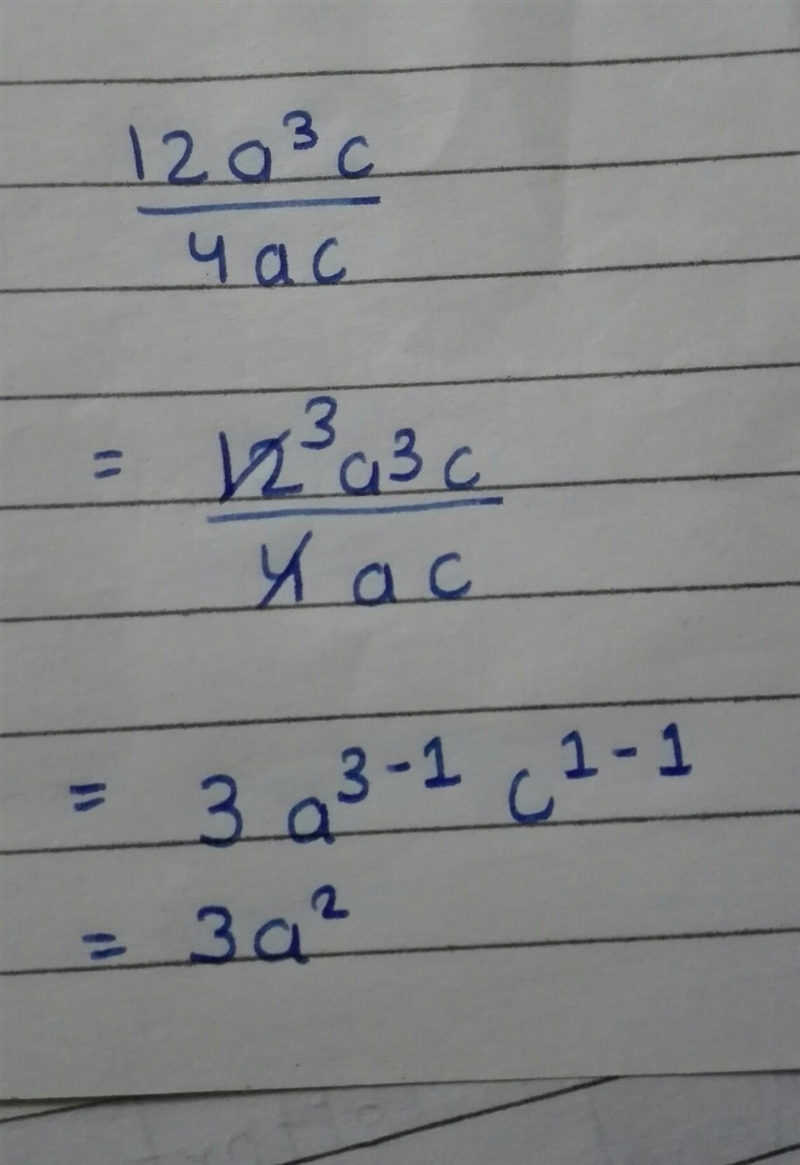 12a³c
4ac
= 12³a³c
4ac
= 3a³⁻¹ c¹⁻¹
= 3a²